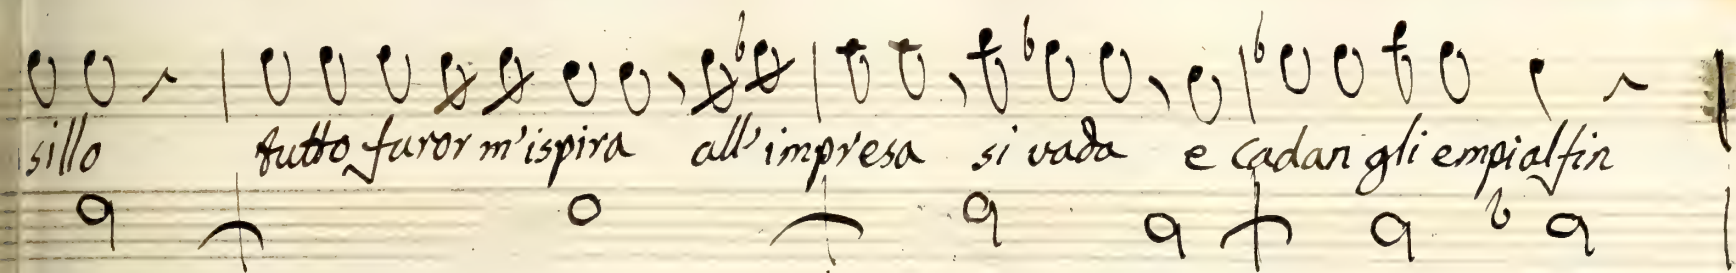 sillo tutto furor m'ispira all'impresa si vada e cadan gli empi alfin